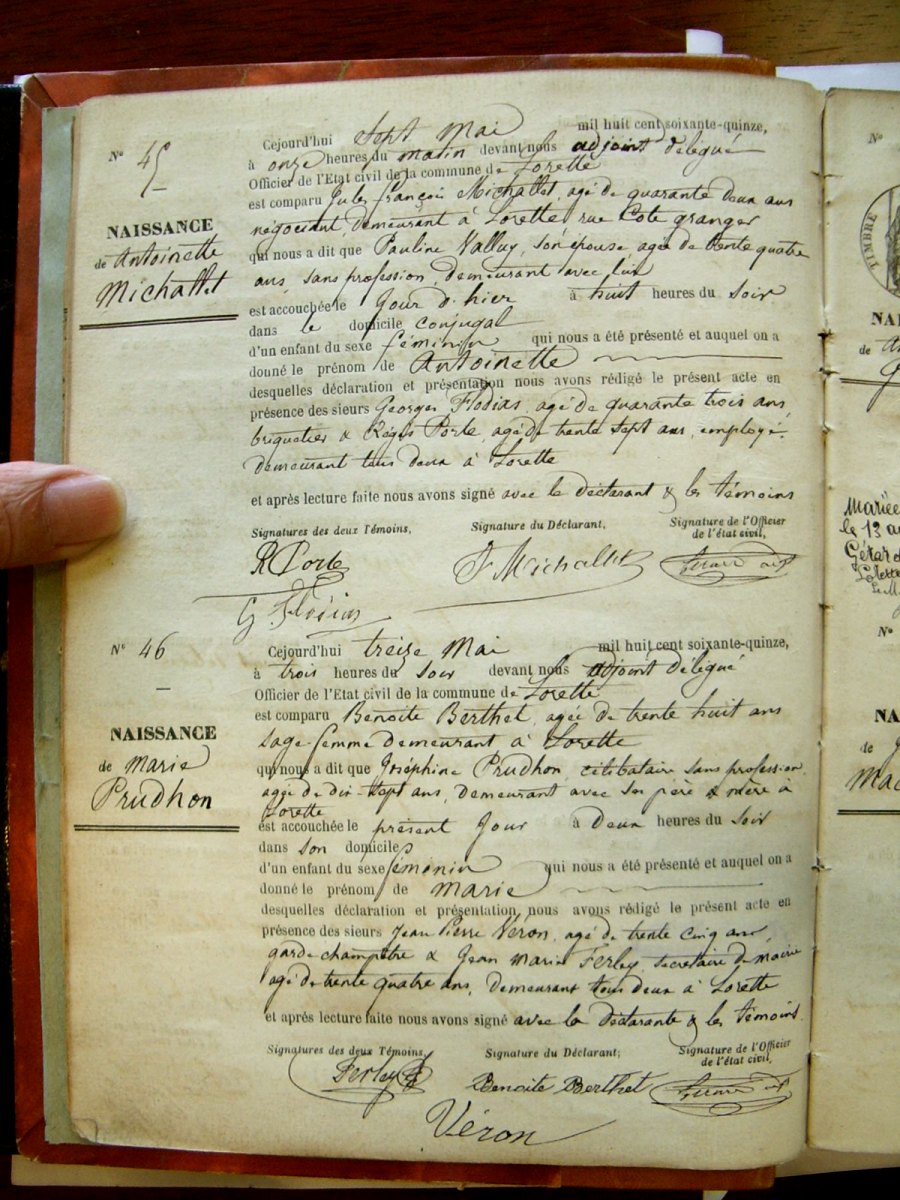 N° 45
NAISSANCE
de Antoinette
Michallet
Cejourd'hui sept Mai mil huit cent soixante-quinze,
à onze heures du matin devant nous adjoint délégué
Officier de l'Etat civil de la commune de Lorette
est comparu Jules françois Michallet, agé de quarante deux ans
négociant, demeurant à Lorette, rue Cote granger
qui nous a dit que Pauline Valluy, son épouse agée de trente quatre
ans, sans profession, demeurant avec lui
est accouchée le Jour d'hier à huit heures du soir
dans le domicile conjugal
d'un enfant du sexe féminin qui nous a été présenté et auquel on a
donné le prénom de Antoinette
desquelles déclaration et présentation nous avons rédigé le présent acte en
présence des sieurs Georges Flodias, agé de quarante trois ans,
briquetier & Régis Porte, agé de trente sept ans, employé,
demeurant tous deux à Lorette
et après lecture faite nous avons signé avec le déclarant & les témoins
Signatures des deux Témoins,
Signature du Déclarant,
Signature de l'Officier
de l'état civil,
R Porte
J Michallet
N° 46
NAISSANCE
de Marie
Prudhon
Cejourd'hui treize Mai mil huit cent soixante-quinze,
à trois heures du soir devant nous adjoint délégué
Officier de l'Etat civil de la commune de Lorette
est comparu Benoite Berthet, agée de trente huit ans
sage femme demeurant à Lorette
qui nous a dit que Joséphine Prudhon, célibataire sans profession,
agée de dix-sept ans, demeurant avec ses père & mère à
Lorette
est accouchée le présent Jour à Deux heures du soir
dans son domicile
d'un enfant du sexe féminin qui nous a été présenté et auquel on a
donné le prénom de Marie
desquelles déclaration et présentation nous avons rédigé le présent acte en
présence des sieurs Jean Pierre Véron, agé de trente cinq ans,
garde champêtre & Jean Marie Ferley, secrétaire de mairie
agé de trente quatre ans, demeurant tous deux à Lorette
et après lecture faite nous avons signé avec la déclarante & les témoins.
Signatures des deux Témoins,
Signature du Déclarant,
Signature de l'Officier
de l'état civil,
Ferley
Benoite Berthet
Véron
N°
TIMBRE
NAI
de
Mariée
le 13
N°
NA
de
Mac